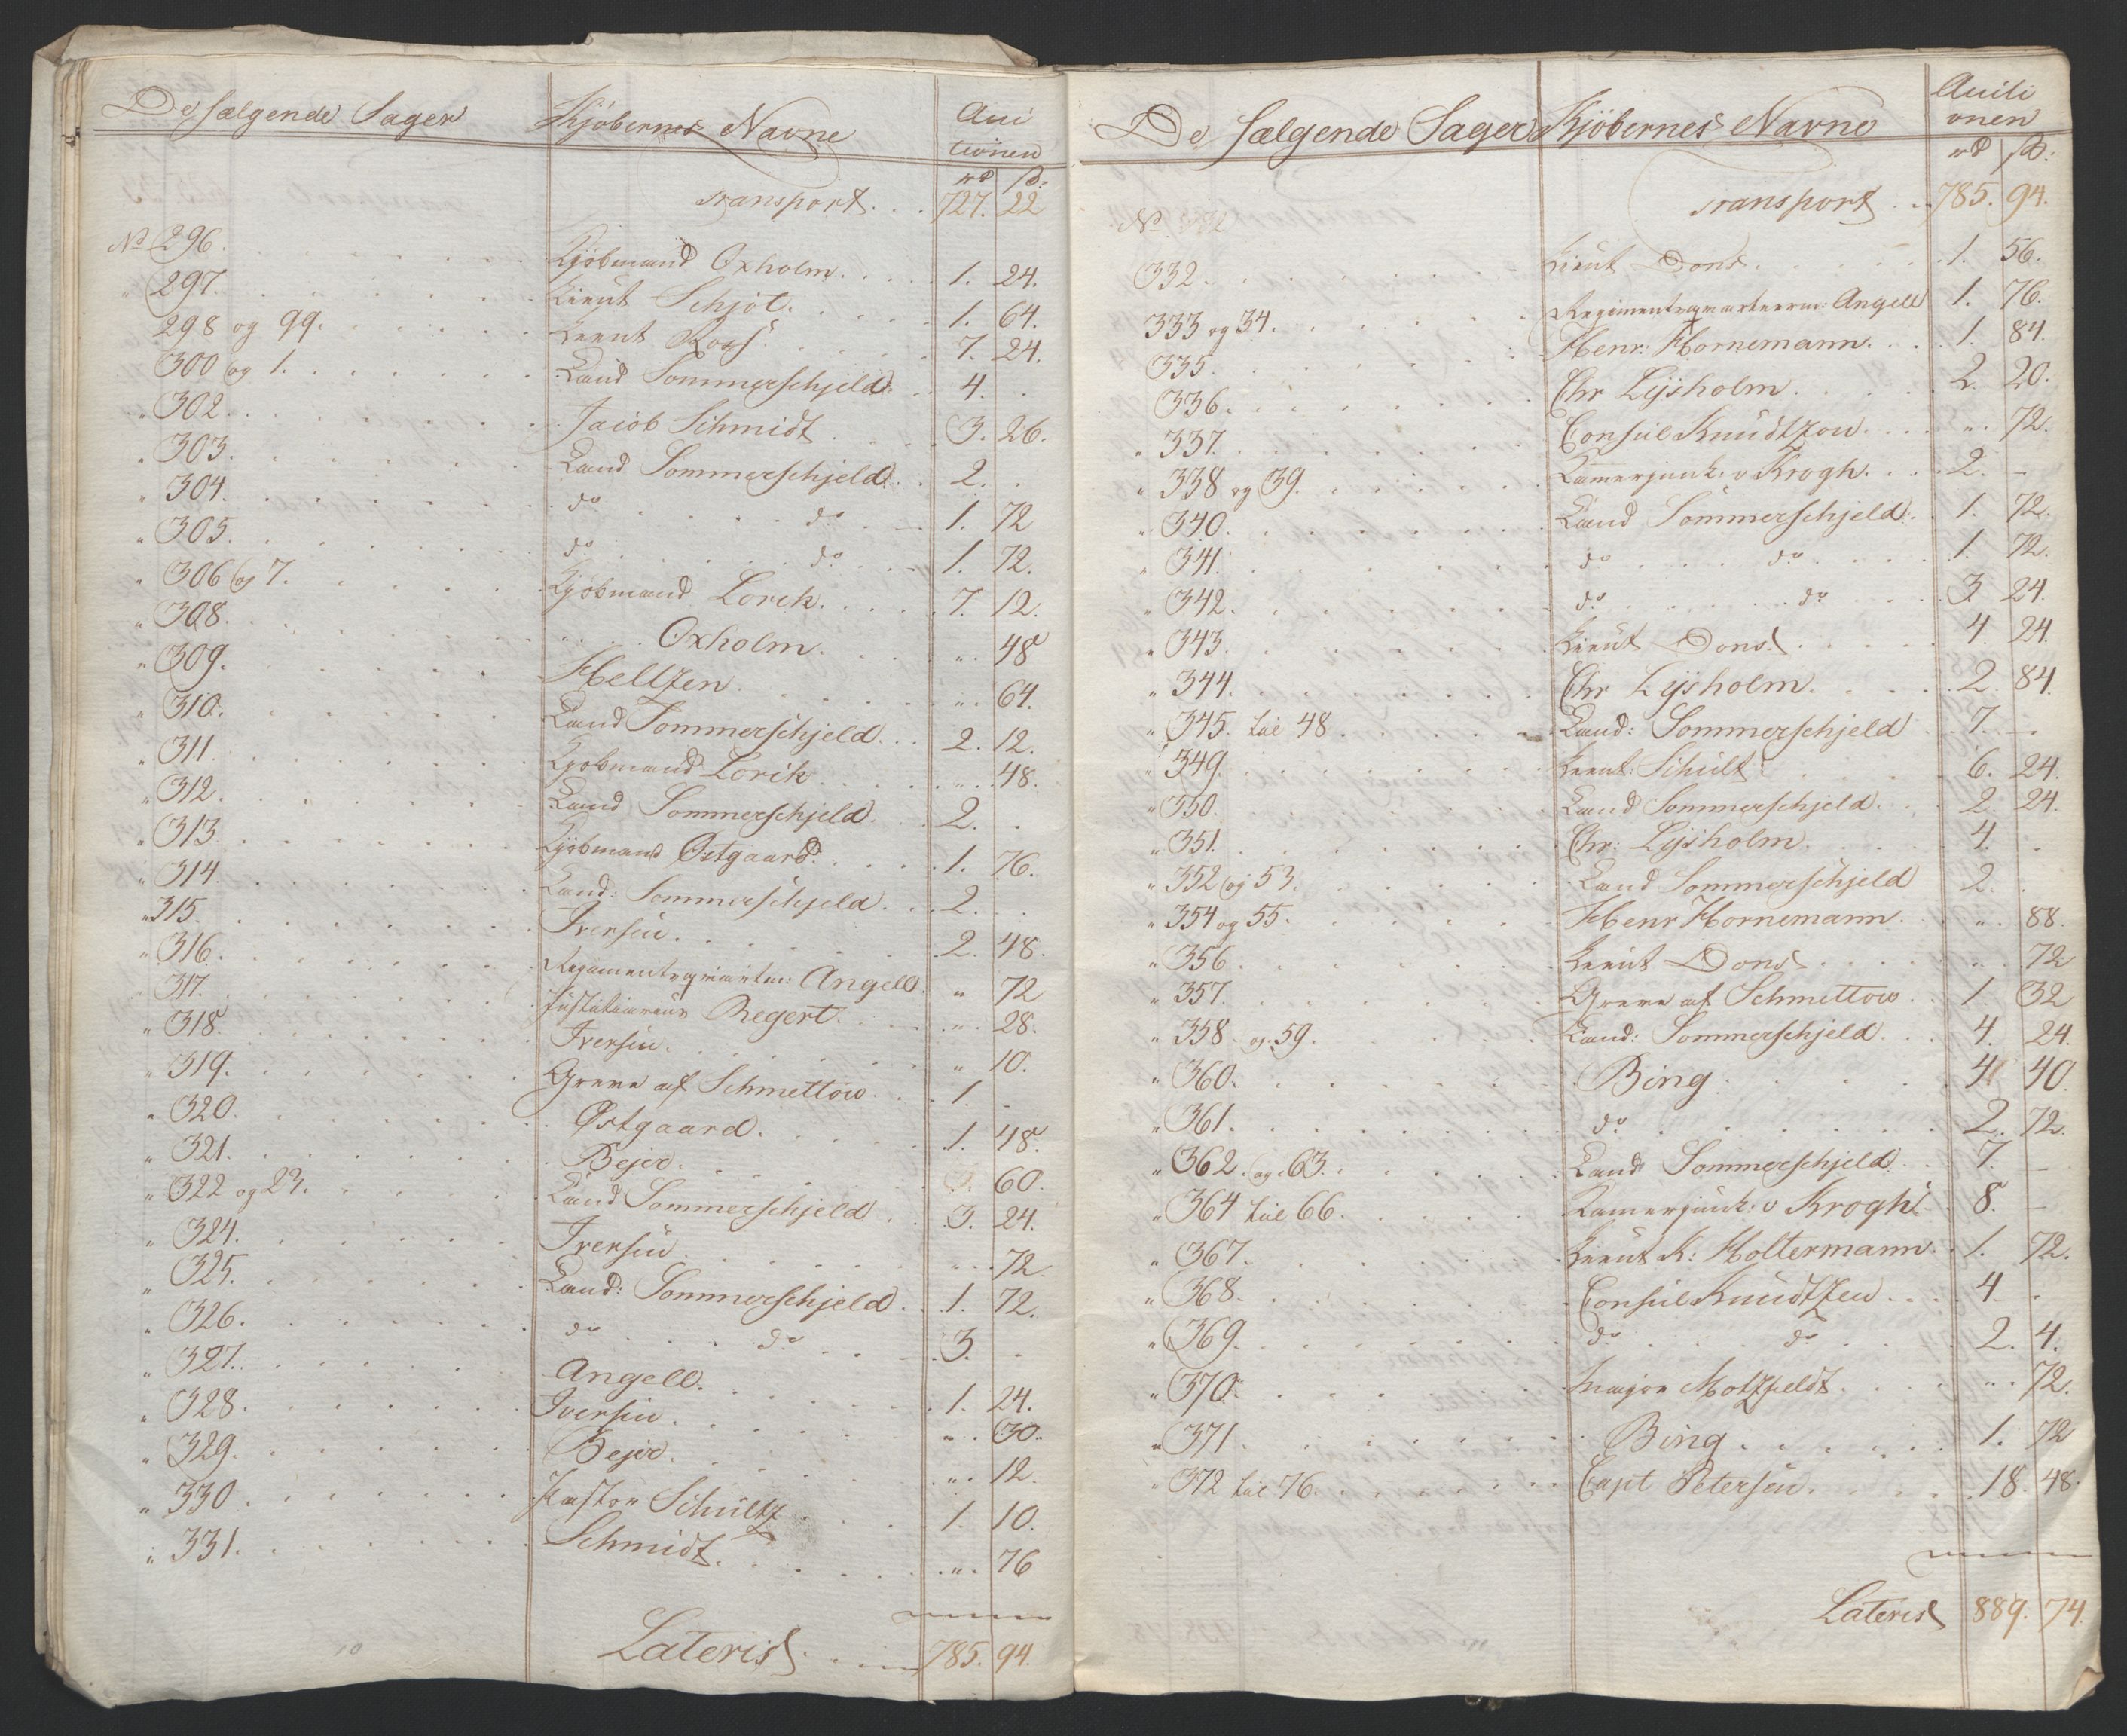 De sælgende Sager Kjøbernes Navne Auctionen
rd ß:
Transport... 727. 22
No 296. Kjøbmand Oxholm. 1. 24.
" 297. Lieut Schjøt. 1. 64.
298 og 99. Lieut Roos 7. 24.
300 og 1. Cand Sommerschjeld 4. .
" 302. Jacob Schmidt 3. 26.
" 303. Cand Sommerschjeld 2. .
" 304. do do 1. 72
" 305. do do 1. 72.
" 306 og 7. Kjøbmand Lorck. 7. 12.
" 308. " Oxholm. " 48
" 309. Helltzen " 64.
" 310. Cand Sommerschjeld 2. 12.
" 311 Kjøbmand Lorck " 48.
" 312. Cand Sommerschjeld. 2. .
" 313 Kjøbmand Østgaard. 1. 76.
" 314. Cand: Sommerschjeld 2. .
" 315. Iversen. 2. 48.
" 316. Regimentsqvarterm: Angell. " 72
317. Justitiarius Regert. " 28.
" 318. Iversen. " 10.
" 319. Greve af Schmettow 1. .
" 320. Østgaard. 1. 48.
" 321. Bejer. 60.
" 322 og 23. Cand Sommerschjeld 3. 24.
" 324. Iversen " 72.
" 325. Cand: Sommerschjeld 1. 72.
" 326. do do 3. .
" 327. Angell. 1. 24.
" 328. Iversen. " 30.
" 329. Bejer. " 12.
" 330. Pastor Schultz 1. 10.
" 331. Schmidt. " 76
Lateris 785. 94.
De sælgende Sager Kjøbernes Navne Auctionen
rd ß:
Transport 785. 94.
No 332
332. Lieut Dons 1. 56.
333 og 34. Regimentsqvarterm: Angell 1. 76.
335. Henr: Hornemann. 1. 84.
336. Chr Lysholm. 2. 20.
" 337. Consul Knudtzon. " 72.
" 338 og 39. Kamerjunk: v Krogh. 2. -
" 340. Cand Sommerschjeld. 1. 72.
" 341. do do 1. 72.
" 342. do do 3. 24.
" 343. Lieut Dons. 4. 24.
" 344. Chr Lysholm. 2. 84.
" 345. til 48. Cand: Sommerschjeld 7. -
" 349. Lieut: Schult 6. 24.
" 350. Cand Sommerschjeld. 2 24.
" 351. Chr: Lysholm. 4. .
" 352 og 53. Cand Sommerschjeld 2. .
" 354 og 55. Henr Hornemann. " 88.
" 356. Lieut Dons " 72
" 357. Greve af Schmettow 1. 32
" 358. og 59. Cand: Sommerschjeld. 4. 24.
" 360. Bing. 4 40.
" 361. do 2. 72.
" 362. og 63. Cand Sommerschjeld 7. -
" 364 til 66. Kamerjunk: v Krogh 8. -
" 367. Lieut K: Holtermann. 1. 72.
" 368. Consul Knudtzen 4 .
" 369. do do 2. 4.
" 370. Major Motzfeldt. " 72.
" 371. Bing. 1. 72
372 til 76. Capt Petersen. 18. 48.
Lateris 889. 74.